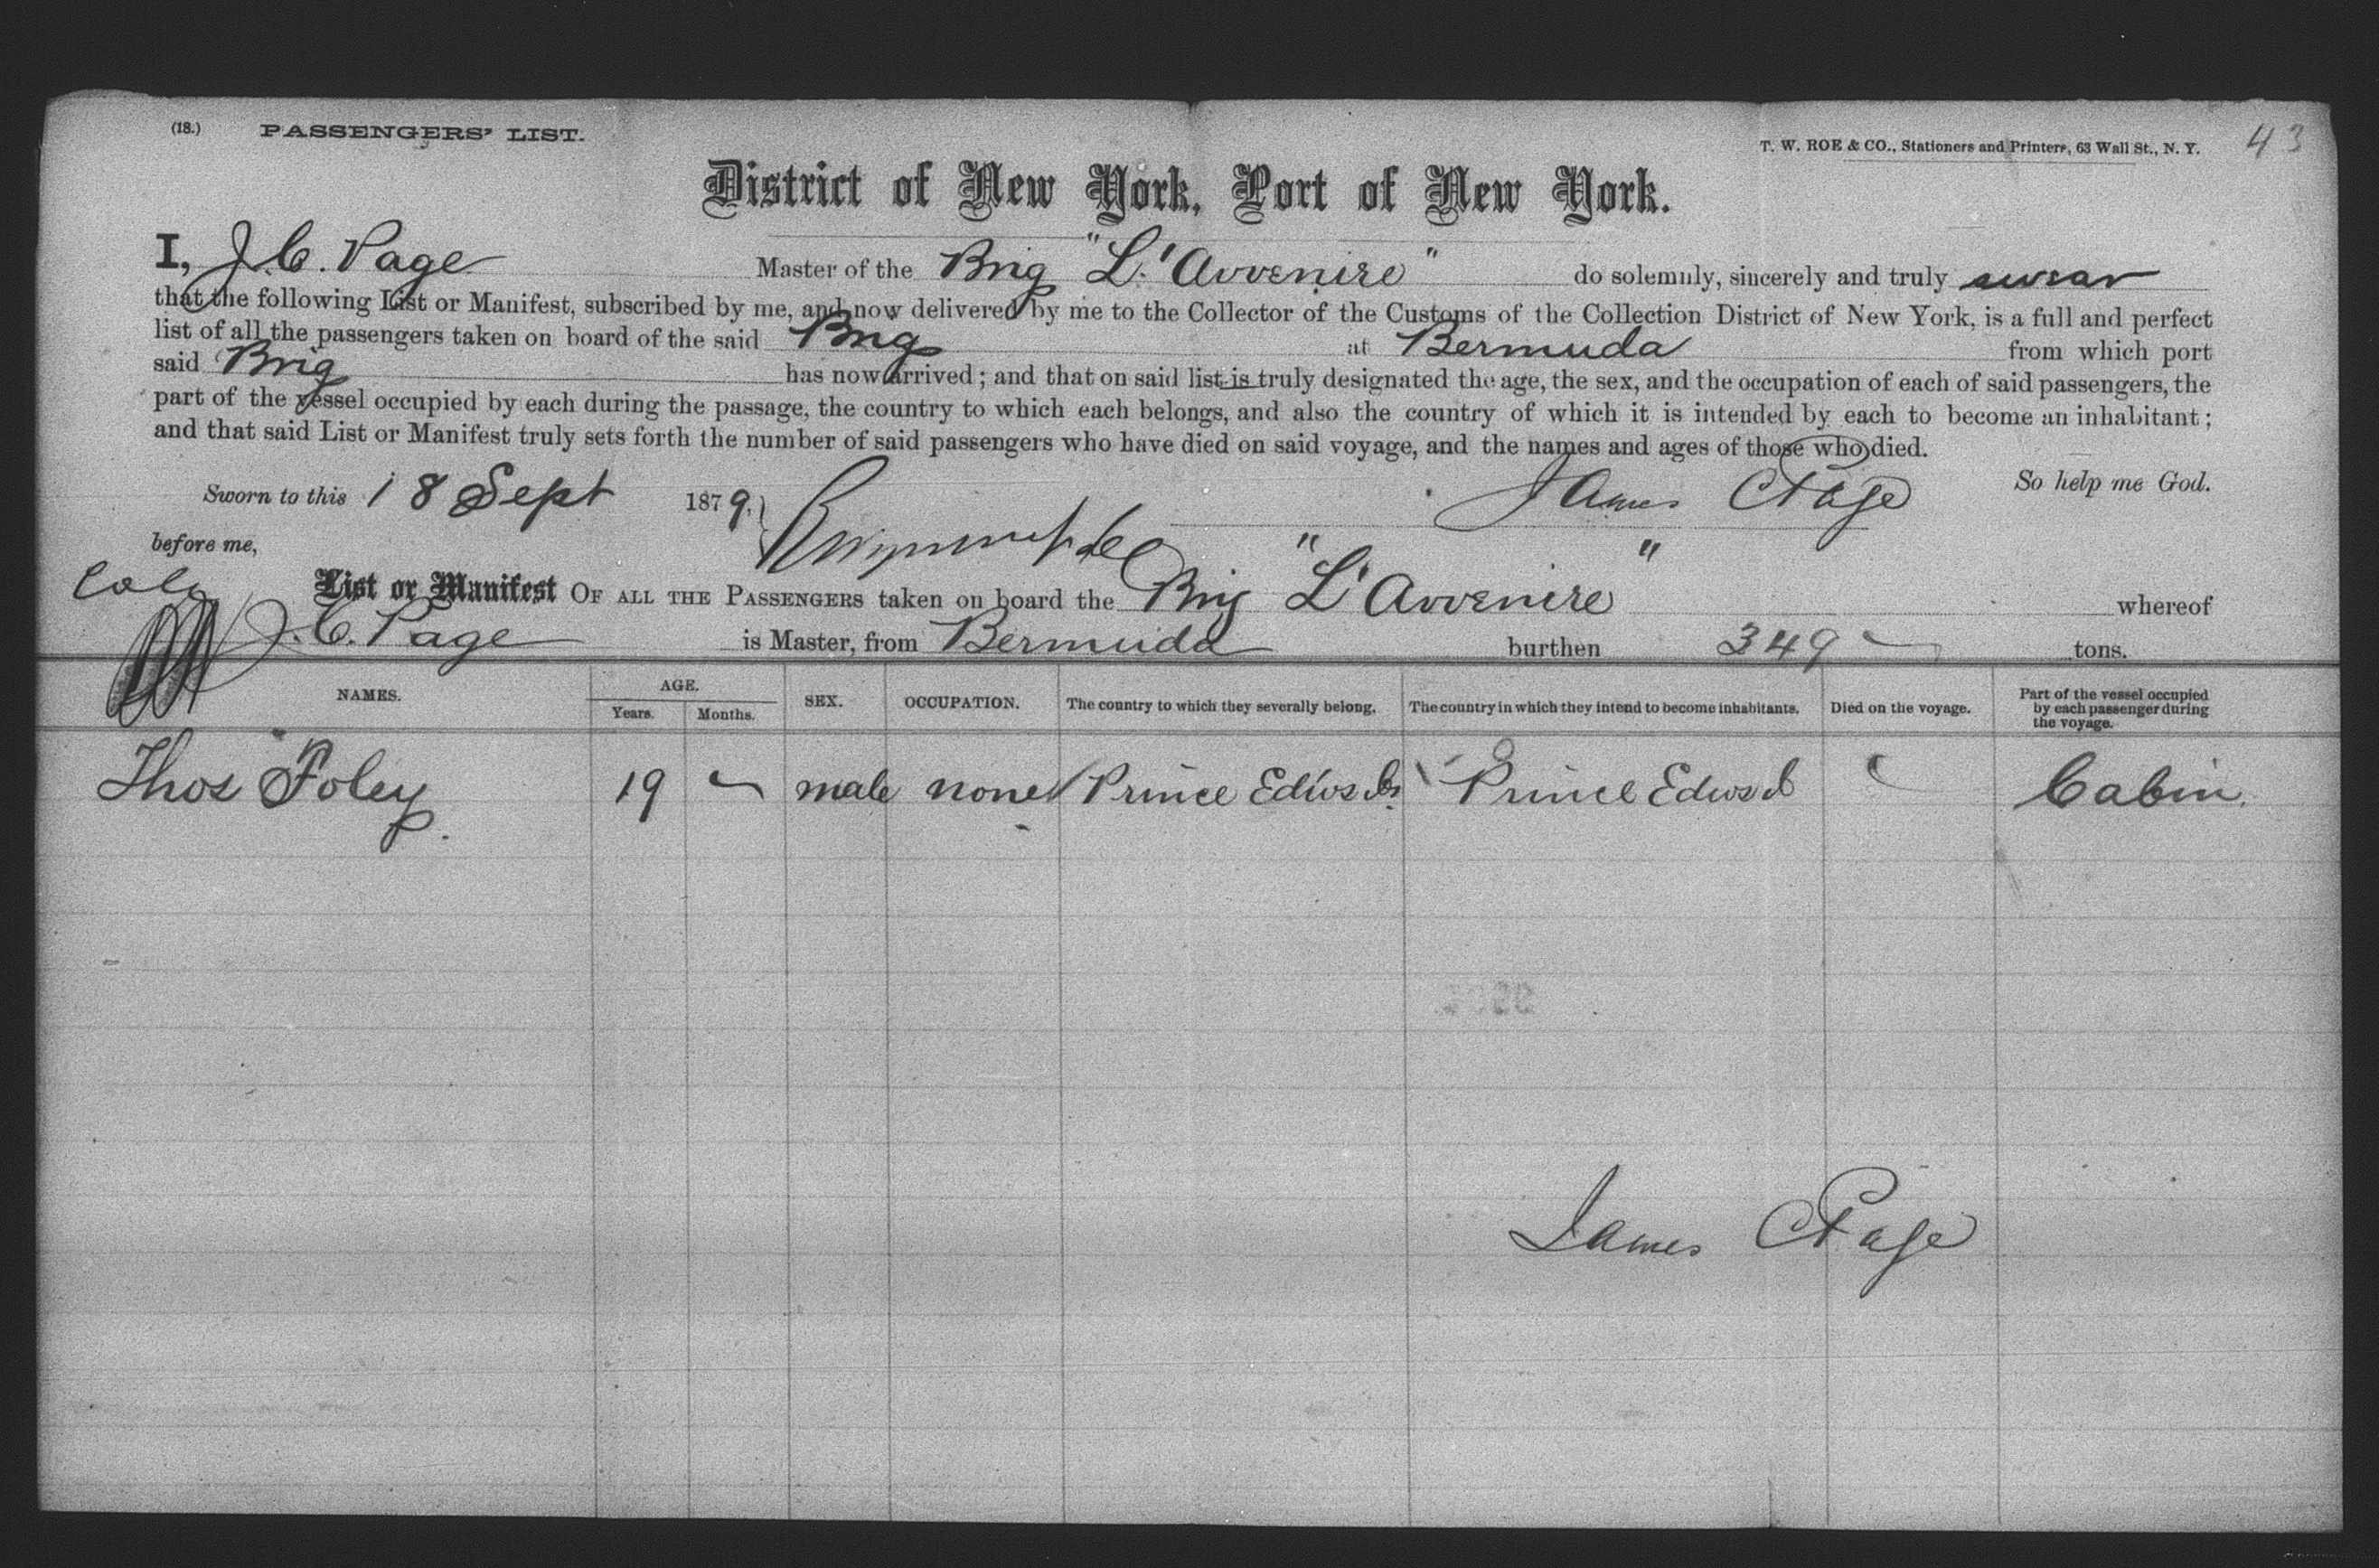 (18.) PASSENGERS' LIST.
T. W. ROE & CO., Stationers and Printers, 63 Wall St., N. Y. 43
District of New York, Port of New York.
I, J. C. Page Master of the Brig "L'Avvenire" do solemnly, sincerely and truly swear
that the following List or Manifest, subscribed by me, and now delivered by me to the Collector of the Customs of the Collection District of New York, is a full and perfect
list of all the passengers taken on board of the said Brig at Bermuda from which port
said Brig has now arrived; and that on said list is truly designated the age, the sex, and the occupation of each of said passengers, the
part of the vessel occupied by each during the passage, the country to which each belongs, and also the country of which it is intended by each to become an inhabitant;
and that said List or Manifest truly sets forth the number of said passengers who have died on said voyage, and the names and ages of those who died.
Sworn to this 18 Sept 1879. James C Page So help me God.
before me,
List or Manifest OF ALL THE PASSENGERS taken on board the Brig "L'Avvenire" whereof
J. C. Page is Master, from Bermuda burthen 349 tons.
NAMES. AGE. Years. Months. SEX. OCCUPATION. The country to which they severally belong. The country in which they intend to become inhabitants. Died on the voyage. Part of the vessel occupied by each passenger during the voyage.
Thos Foley 19 male none Prince Edws Prince Edwd Cabin.
James C Page